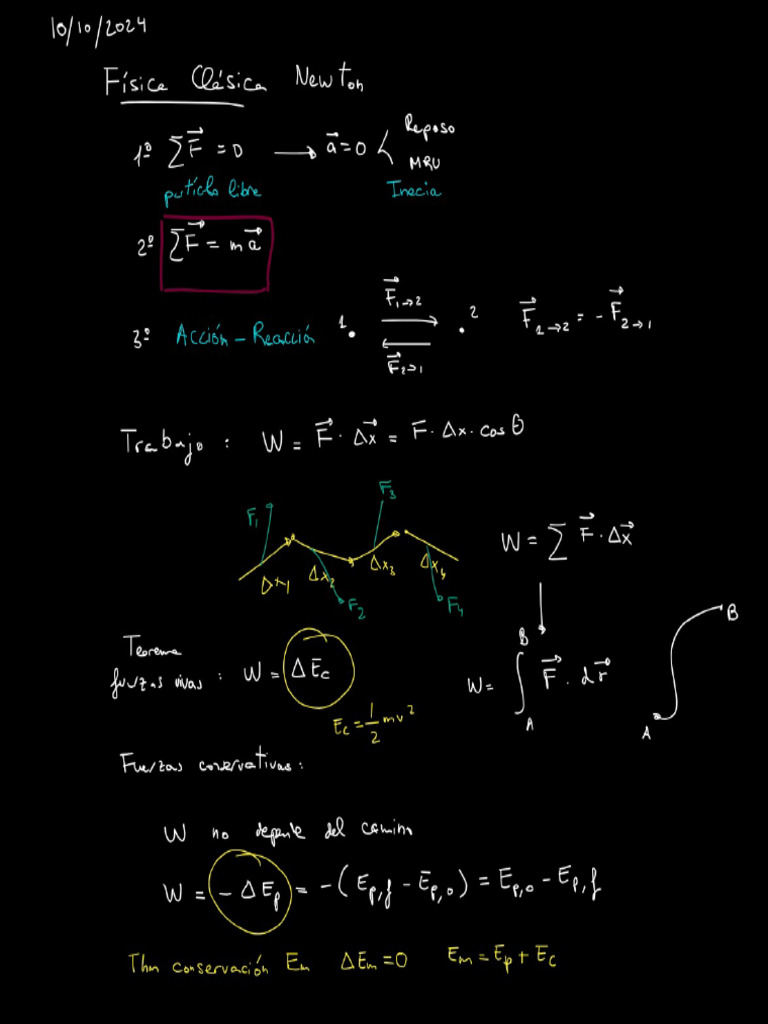 10/10/2024
Física Clásica Newton
1º ∑F⃗ = 0 → a⃗ = 0 < Reposo
MRU
partícla libre Inecia
2º ∑F⃗ = m a⃗
3º Acción - Reacción 1. F⃗1→2 . 2 F⃗1→2 = - F⃗2→1
F⃗2→1
Trabajo : W = F⃗ · Δx⃗ = F · Δx · cos θ
F1 F3
Δx1 Δx2 Δx3 Δx4
F2 F4
W = ∑ F⃗ · Δx⃗
Teorema
fuerzas vivas : W = ΔEc
Ec = 1/2 mv²
W = ∫ A B F⃗ · dr⃗
A B
Fuerzas conservativas :
W no depende del camino
W = - ΔEp = - (Ep,f - Ep,0) = Ep,0 - Ep,f
Thm conservación Em ΔEm = 0 Em = Ep + Ec